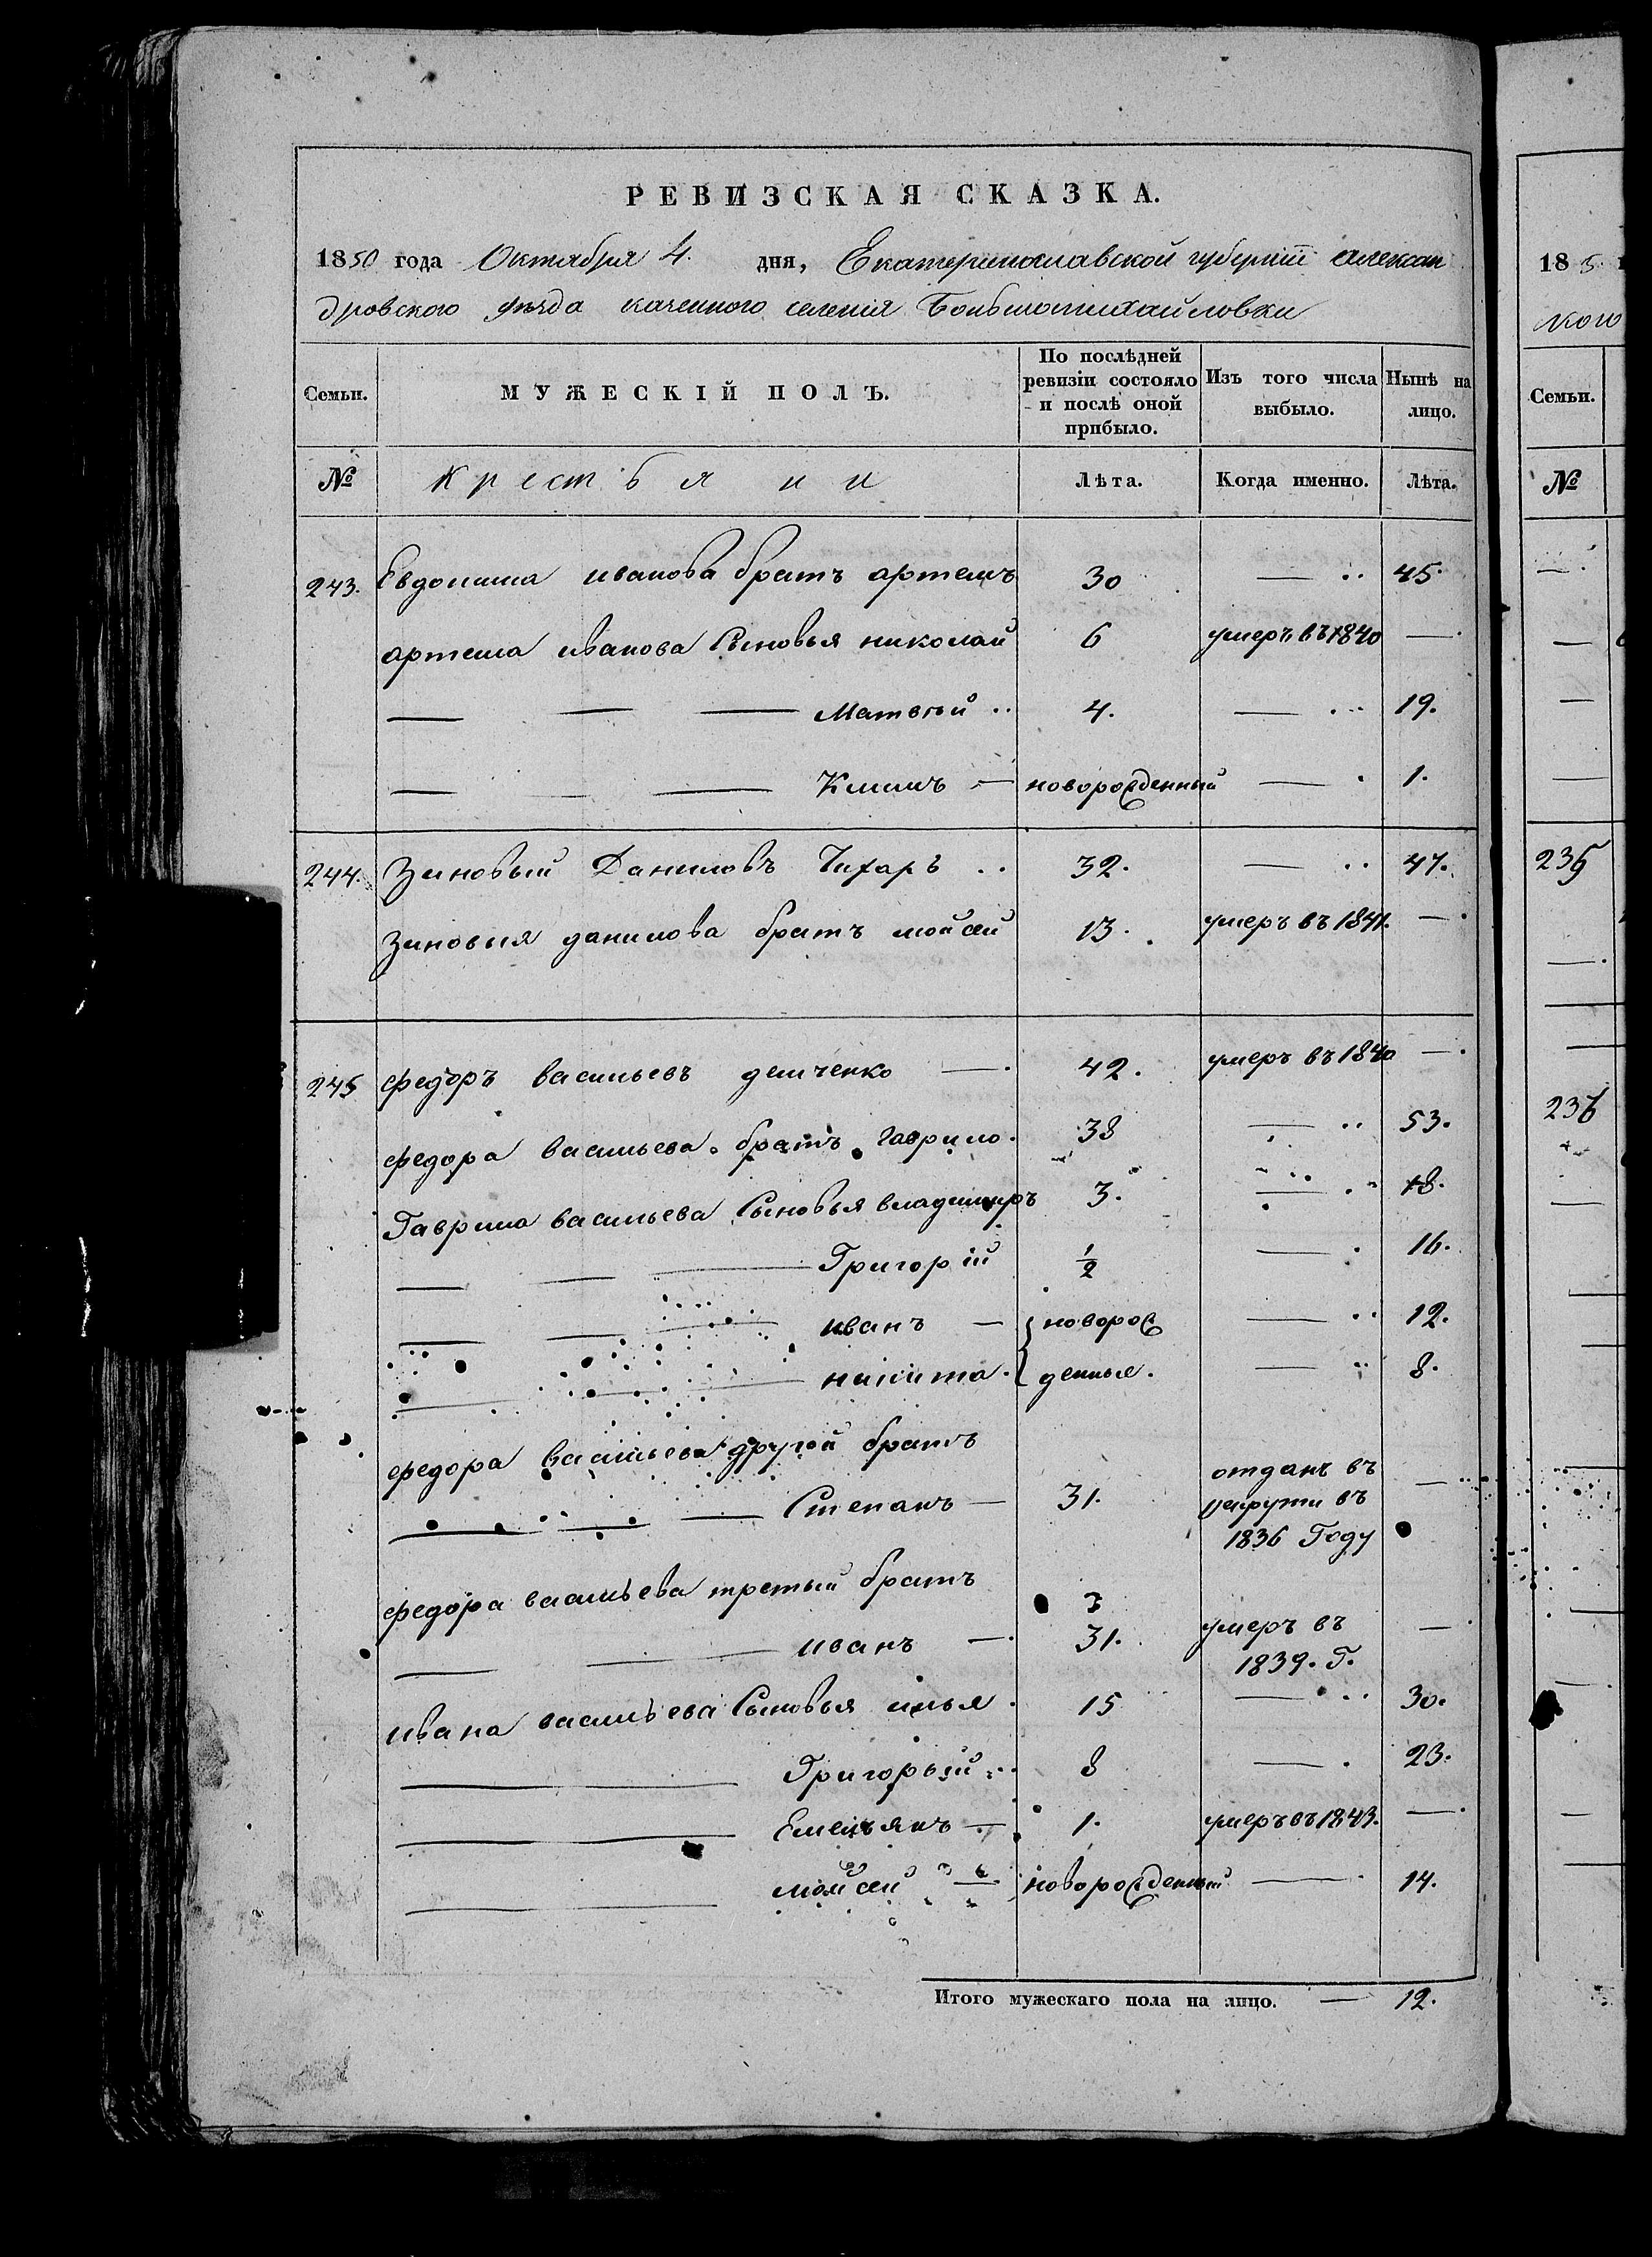 РЕВИЗСКАЯ СКАЗКА.
1850 года Октября 4. дня, Екатеринославской губерніи Алексан
дровского уѣзда казенного селенія Большомихайловки
Семьи. МУЖЕСКІЙ ПОЛЪ. По послѣдней ревизіи состояло и послѣ оной прибыло. Изъ того числа выбыло. Нынѣ на лицо.
№ Крестьяни Лѣта. Когда именно. Лѣта.
243. Евдокима иванова братъ артемъ 30 — .. 45.
артема иванова Сыновья николай 6 умеръ въ 1840 —.
— — — Матвѣй .. 4. — ... 19.
— — — Климъ — новорожденный — . 1.
244. Зиновый Даниловъ Чихарь .. 32. — .. 47.
Зиновыя данилова братъ мойсей 13. умеръ въ 1841. —.
245 федоръ васильевъ демченко —. 42. умеръ въ 1840 —.
федора васильева братъ гаврило. 38 — .. 53.
Гаврила васильева Сыновья владимиръ 3. — .. 18.
— — — Григорій ½ — . 16.
— — — иванъ — новорож — .. 12.
— — — никита. денные. — .. 8.
федора васильева другой братъ
— — — Степанъ — 31. отданъ въ рекруты въ 1836 Году —
федора васильева третый братъ
— — — иванъ —. 31. умеръ въ 1839. Г. —
ивана васильева Сыновья илья . 15 — .. 30.
— — Григорый .. 8 — . 23.
— — Емельянъ — 1. умеръ въ 1843. —.
— — мойсей — новорожденный — . 14.
Итого мужескаго пола на лицо. — 12.
185
Семьи.
№
235
236